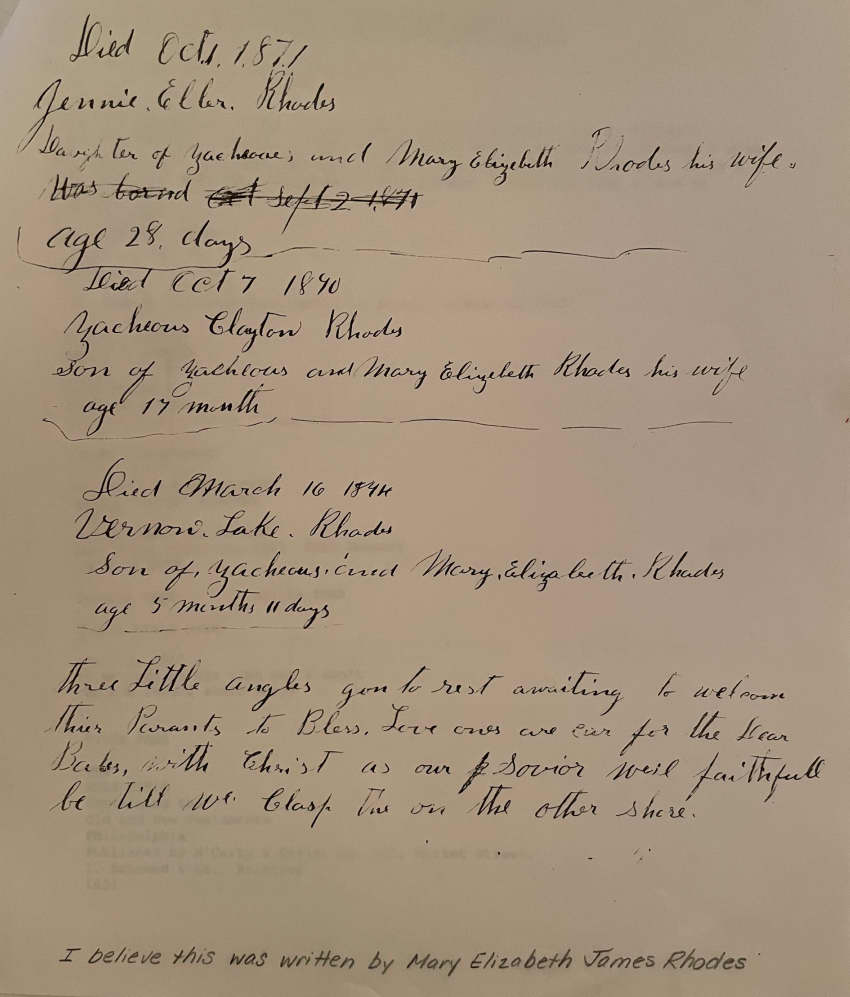 Died Oct.1.1.871
Jennie. Eller. Rhodes
Daughter of Yacheous and Mary Elizebeth Rhodes his wife.
Was bornd Oct Sept 2 1871
age 28. days
Died Oct 7 1890
Yacheous Clayton Rhodes
Son of Yacheous and Mary Elizebeth Rhodes his wife
age 17 month
Died March 16 1894
Vernon. Lake. Rhodes
Son of, Yacheous. and Mary. Elizabeth. Rhodes
age 5 months 11 days
three Little angles gon to rest awaiting to welcom
thier Parants to Bless. Love ones are for the Dear
Babes, with Christ as our Sovior weil faithfull
be till we Clasp on the other shore.
Philadelphia
I believe this was written by Mary Elizabeth James Rhodes